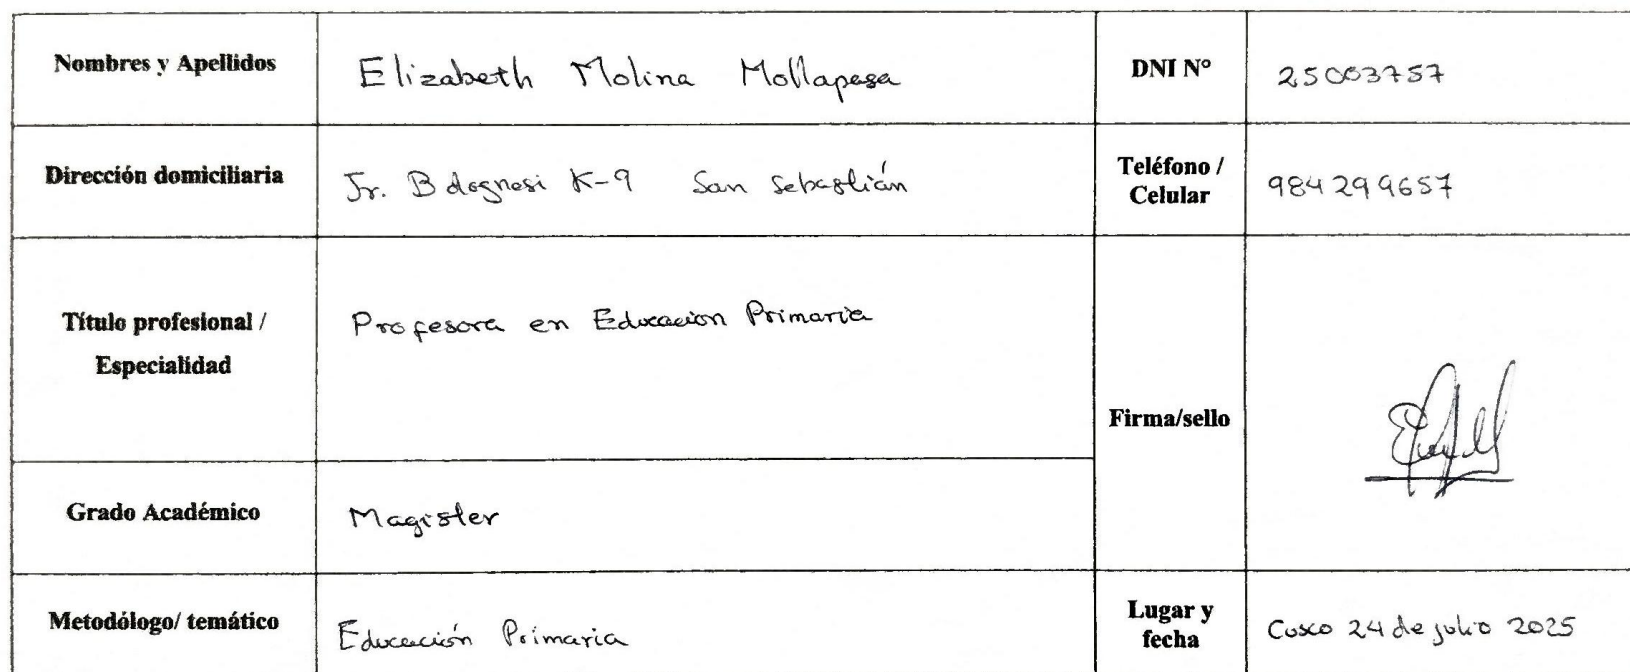 Nombres y Apellidos Elizabeth Molina Mollapasa DNI N° 25003757
Dirección domiciliaria Jr. Bolognesi K-9 San Sebastián Teléfono / Celular 984299657
Título profesional / Especialidad Profesora en Educacion Primaria
Firma/sello
Grado Académico Magister
Metodólogo/ temático Educación Primaria Lugar y fecha Cusco 24 de julio 2025